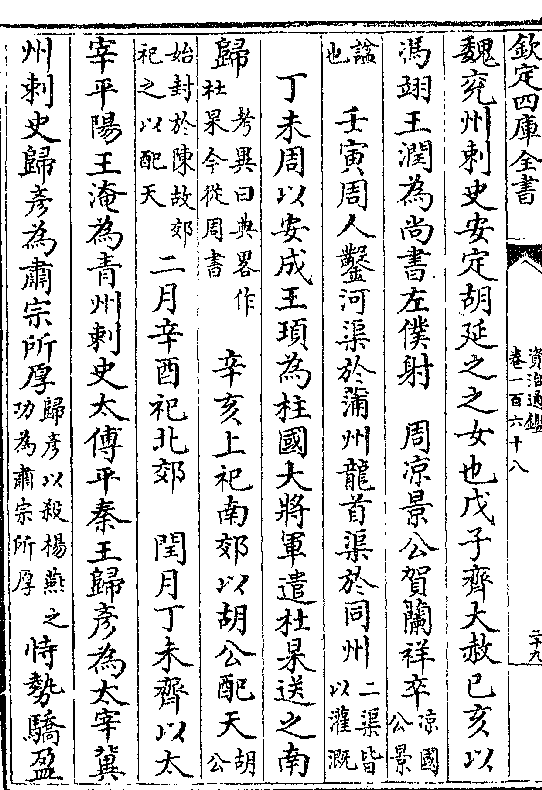 欽定四庫全書
資治通鑑
卷一百六十八
二十九
魏兖州刺史安定胡延之之女也戊子齊大赦己亥以
馮翊王潤為尚書左僕射　周涼景公賀蘭祥卒涼國公景
諡也　壬寅周人鑿河渠於蒲州龍首渠於同州二渠皆以灌溉
丁未周以安成王頊為柱國大將軍遣杜杲送之南
歸考異曰典畧作杜果今從周書　辛亥上祀南郊以胡公配天胡公
始封於陳故郊祀之以配天　二月辛酉祀北郊　閏月丁未齊以太
宰平陽王淹為青州刺史太傅平秦王歸彥為太宰冀
州刺史歸彥為肅宗所厚歸彥以殺楊燕之功為肅宗所厚恃勢驕盈